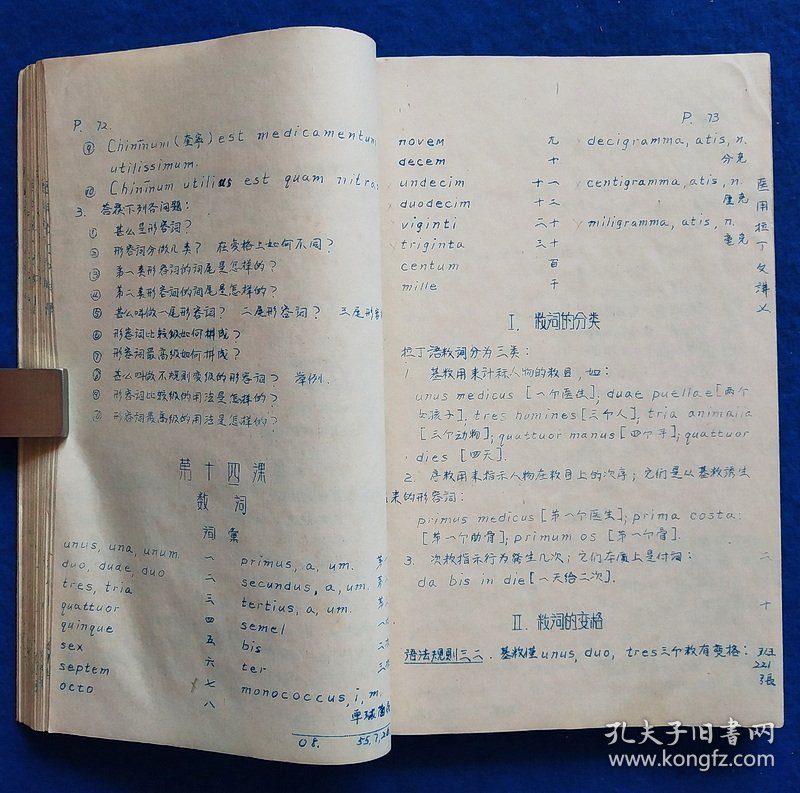 P. 72.
⑨ Chininum (奎宁) est medicamentum
utilissimum.
⑩ Chininum utilius est quam nitra
3. 答复下列各问题：
① 甚么是形容词？
② 形容词分做几类？ 在变格上如何不同？
③ 第一类形容词的词尾是怎样的？
④ 第二类形容词的词尾是怎样的？
⑤ 甚么叫做一尾形容词？ 二尾形容词？ 三尾形容
⑥ 形容词比较级如何构成？
⑦ 形容词最高级如何构成？
⑧ 甚么叫做不规则变级的形容词？ 举例.
⑨ 形容词比较级的用法是怎样的？
⑩ 形容词最高级的用法是怎样的？
第十四课
数词
词汇
unus, una, unum. 一 primus, a, um. 第一
duo, duae, duo 二 secundus, a, um. 第
tres, tria 三 tertius, a, um. 第
quattuor 四 semel 一
quinque 五 bis 二
sex 六 ter 三
septem 七 monococcus, i, m.
octo 八 单球菌
08. 55,7,28
P. 73
novem 九 decigramma, atis, n.
decem 十 分克
undecim 十一 centigramma, atis, n.
duodecim 十二 厘克
viginti 二十 miligramma, atis, n.
triginta 三十 毫克
centum 百
mille 千
医用拉丁文讲义
I. 数词的分类
拉丁语数词分为三类：
1. 基数用来计称人物的数目，如：
unus medicus [一个医生]; duae puellae [两个
女孩子]; tres homines [三个人]; tria animalia
[三个动物]; quattuor manus [四个手]; quattuor
dies [四天].
2. 序数用来指示人物在数目上的次序；它们是从基数诱生
来的形容词：
primus medicus [第一个医生]; prima costa
[第一个肋骨]; primum os [第一个骨].
3. 次数指示行为发生几次；它们本质上是付词：
da bis in die [一天给二次].
二
十
II. 数词的变格
语法规则三二. 基数仅 unus, duo, tres 三个数有变格：
313
221
3張
孔夫子旧书网
www.kongfz.com